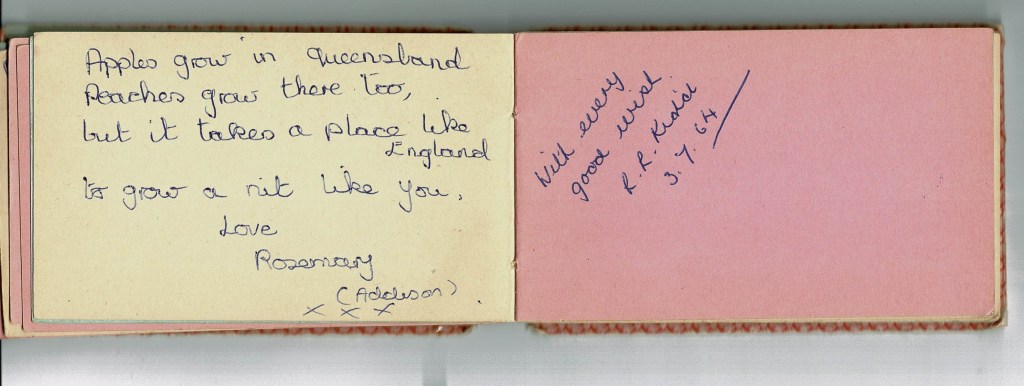 Apples grow in Queensland
Peaches grow there too,
but it takes a place like
England
to grow a nit like you.
Love
Rosemary
(Addison)
x x x
With every
good wish
R. R. Kidd
3.7.64